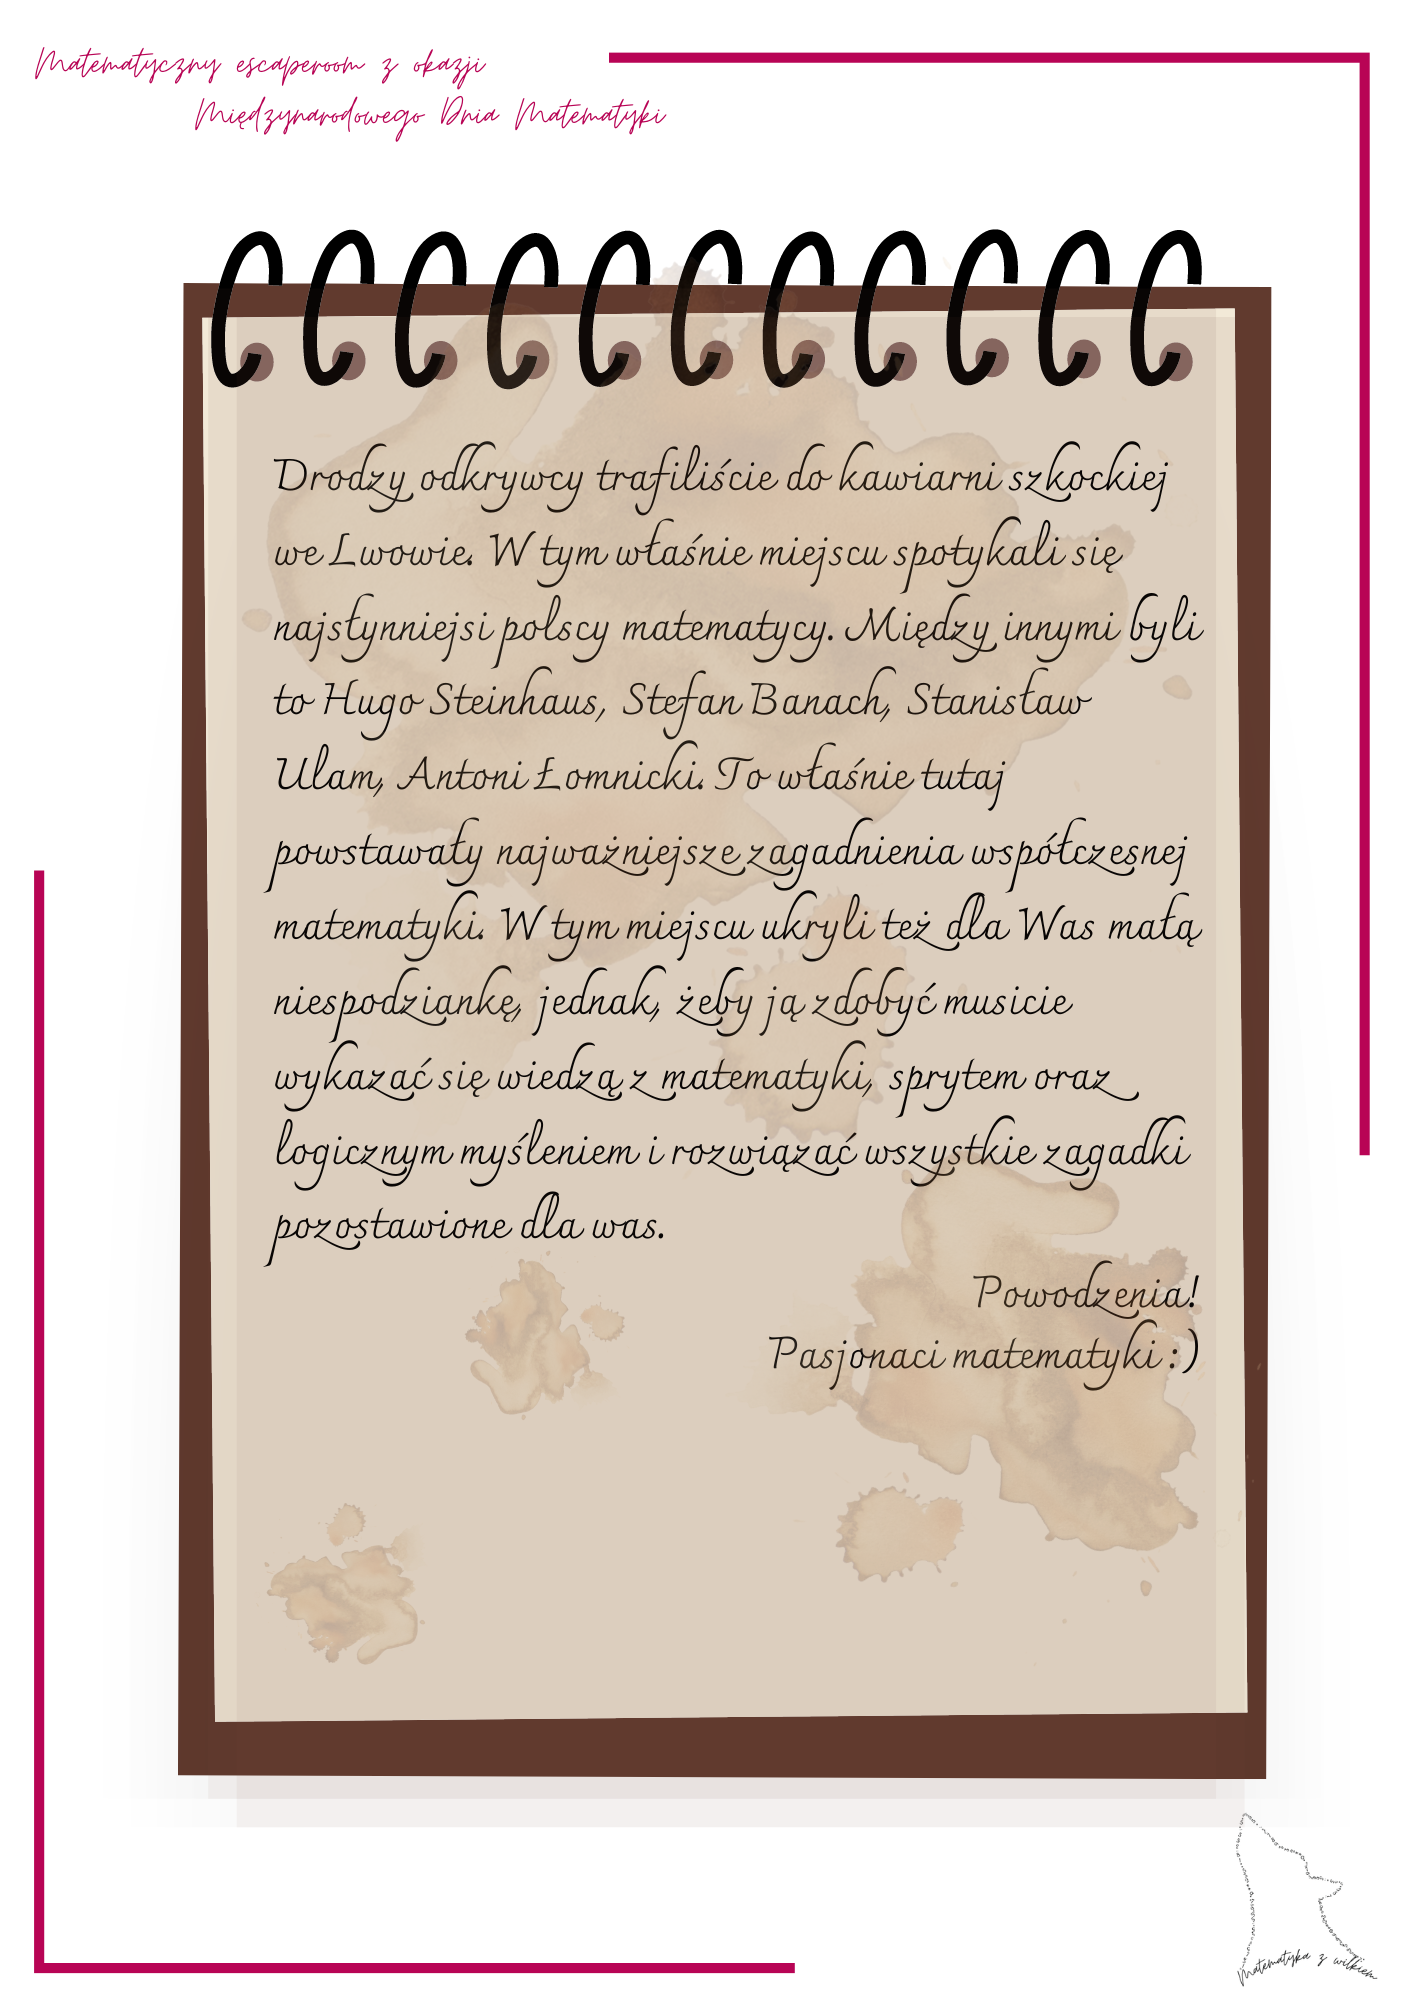 Matematyczny escaperoom z okazji
Międzynarodowego Dnia Matematyki
Drodzy odkrywcy trafiliście do kawiarni szkockiej
we Lwowie. W tym właśnie miejscu spotykali się
najsłynniejsi polscy matematycy. Między innymi byli
to Hugo Steinhaus, Stefan Banach, Stanisław
Ulam, Antoni Łomnicki. To właśnie tutaj
powstawały najważniejsze zagadnienia współczesnej
matematyki. W tym miejscu ukryli też dla Was małą
niespodziankę, jednak, żeby ją zdobyć musicie
wykazać się wiedzą z matematyki, sprytem oraz
logicznym myśleniem i rozwiązać wszystkie zagadki
pozostawione dla was.
Powodzenia!
Pasjonaci matematyki :)
Matematyka z wilkiem